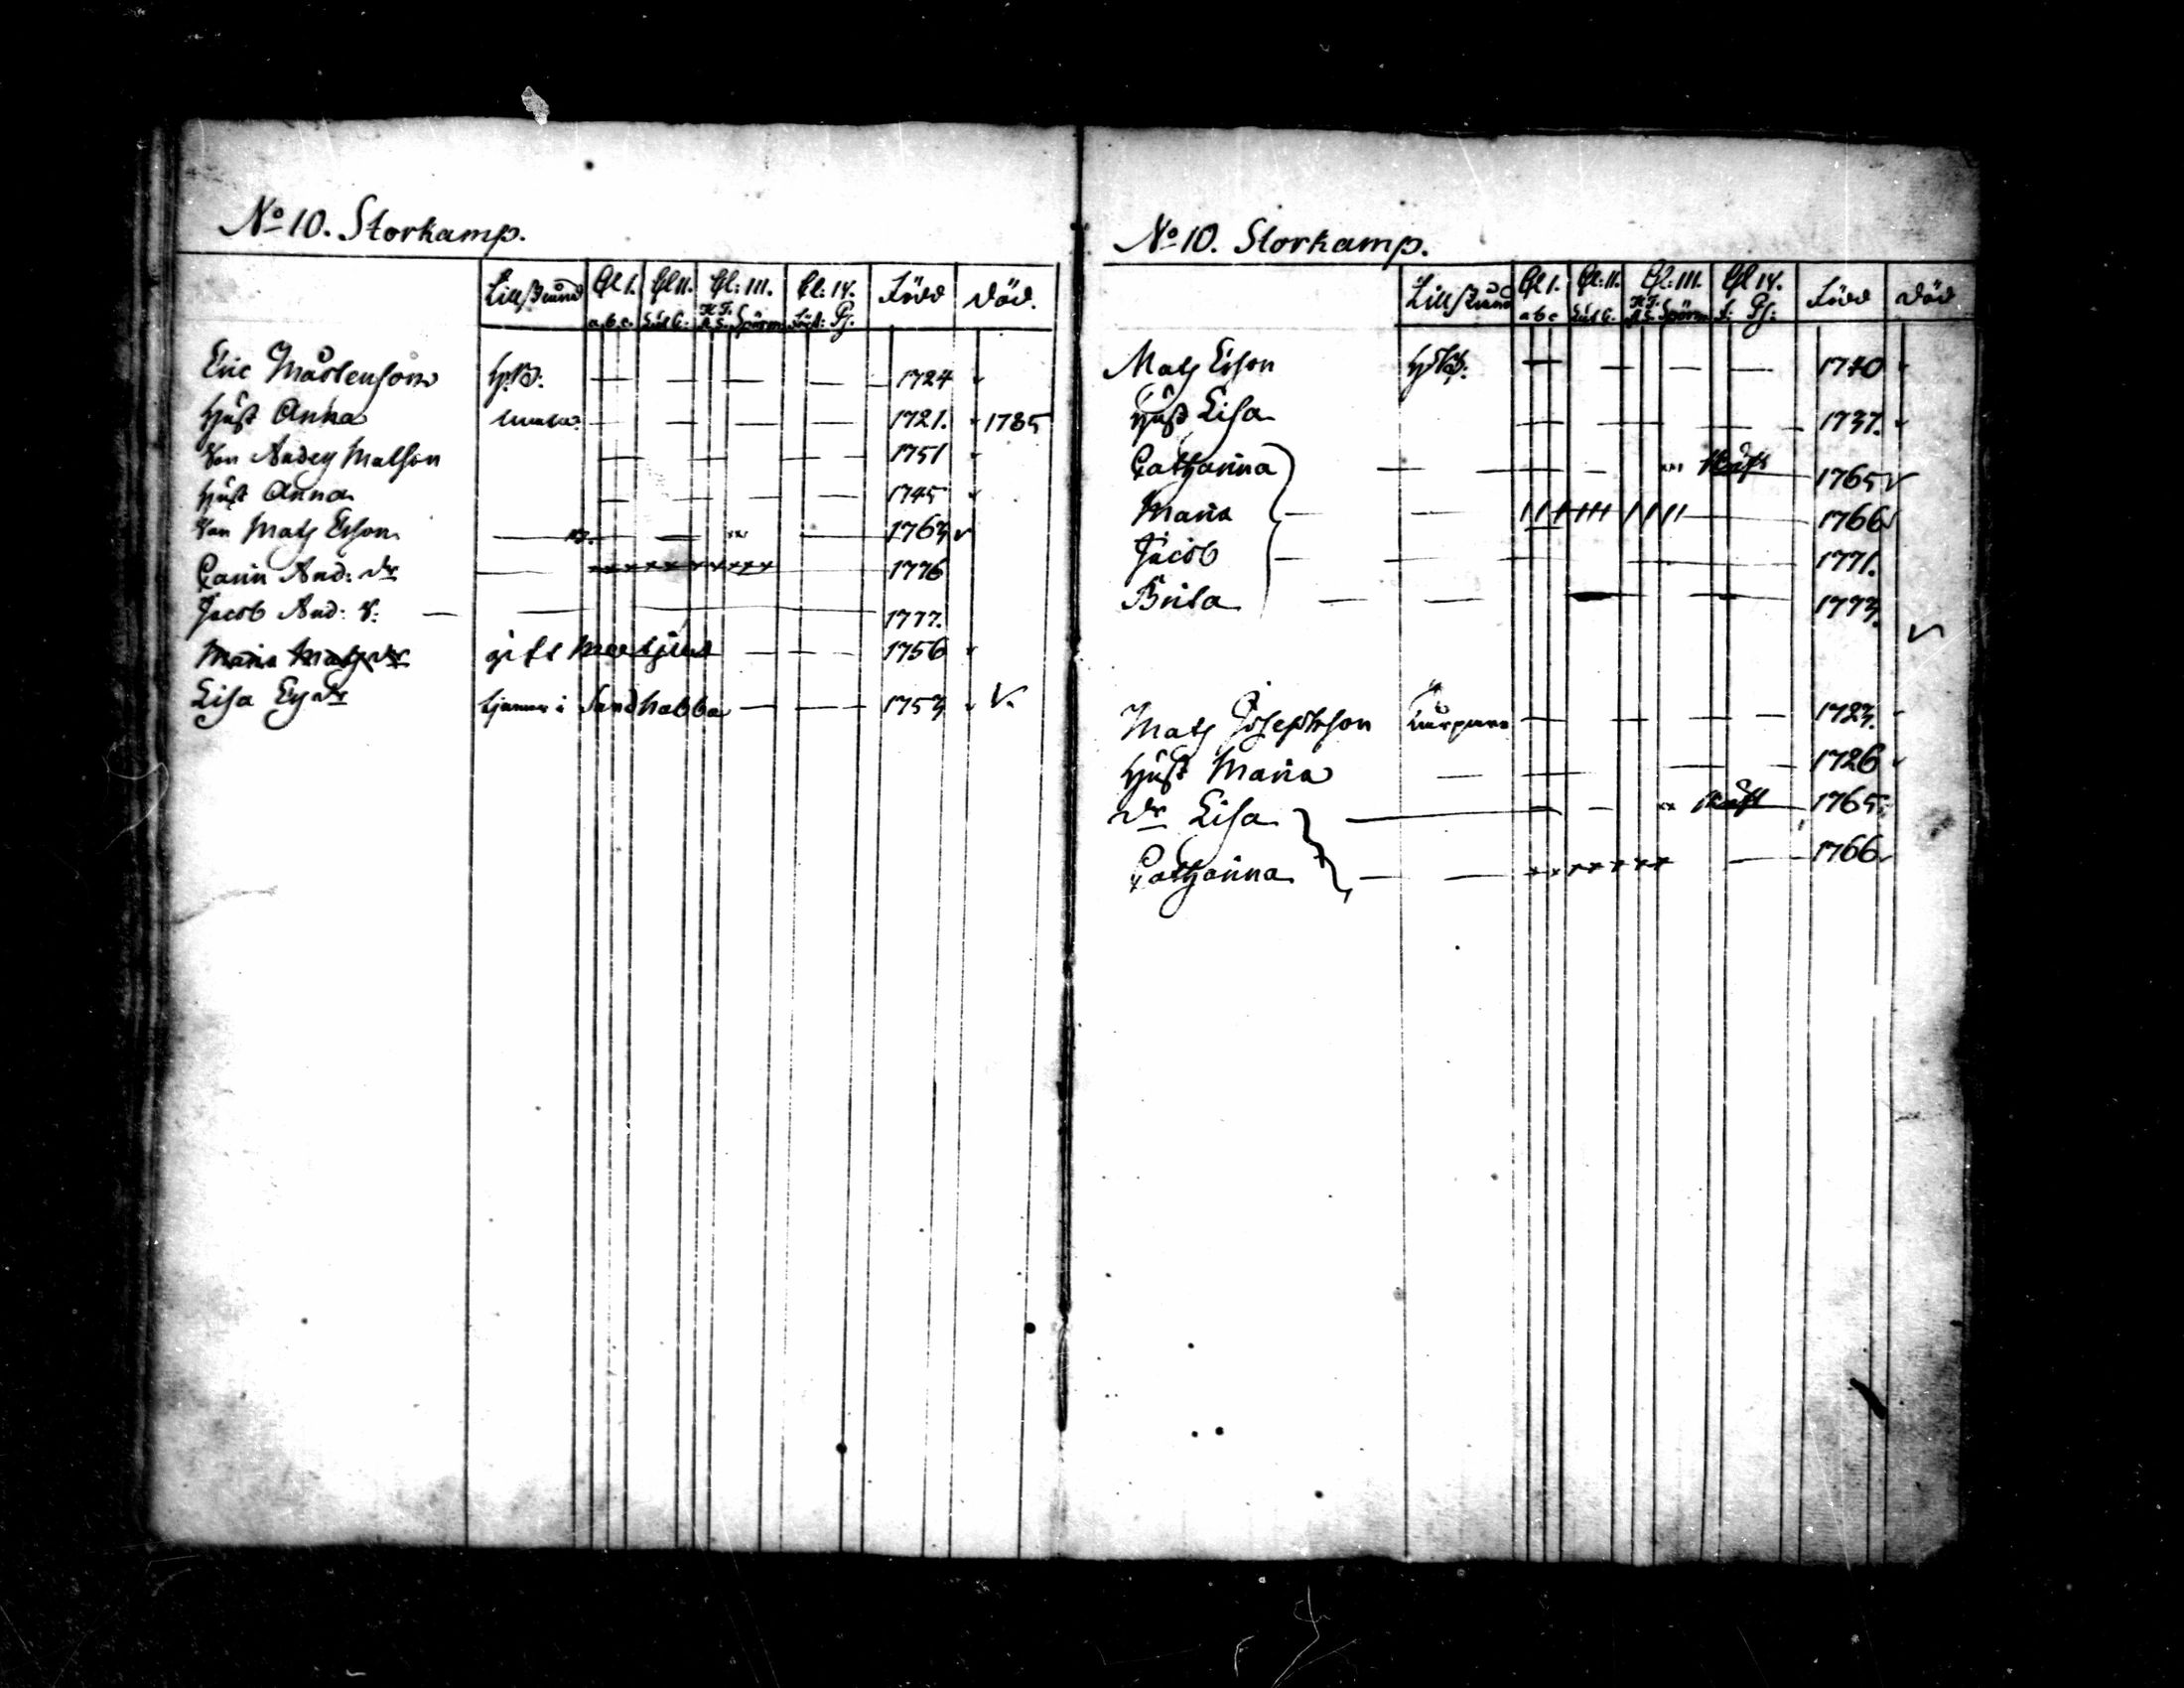 No 10. Storkamp.
Tillstånd Cl I. Cl II. Cl: III. Cl: IV. Född Död.
a. b. c. Spörsm. Ps.
Eric Mårtensson 1724
Hust Anna 1721. 1785
Son Anders Matsson 1751
Hust Anna 1745
Son Mats Ersson 1763
Carin And: dr 1776
Jacob And: S. 1777.
Maria Mats dr gift 1756
Lisa Ers dr tjenar i Sandkabba 1753
No 10. Storkamp.
Tillstånd Cl I. Cl: II. Cl: III. Cl IV. Född Död
a b c Spörsm f: Ps:
Mats Ersson 1740
Hust Lisa 1737.
Catharina 1765
Maria 1766
Jacob 1771.
Brita 1773.
Mats Josephsson 1723.
Hust Maria 1726
dr Lisa 1765
Catharina 1766